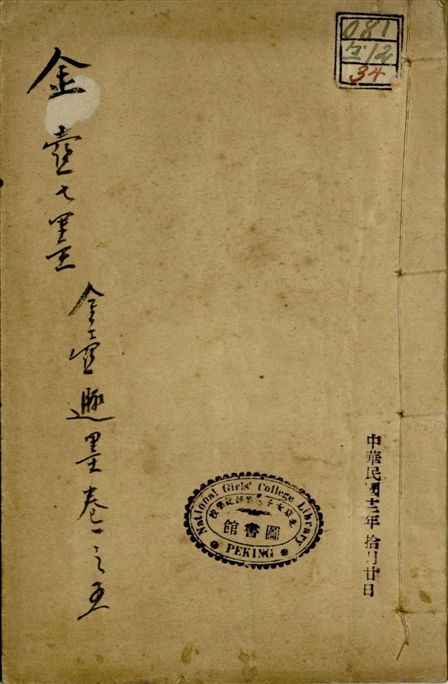 081
12
34
中華民國十二年 拾月廿日
National Girls' College Library
北京女子高等師範學校
圖書館
PEKING
金壺七墨
金壺遯墨卷一之五